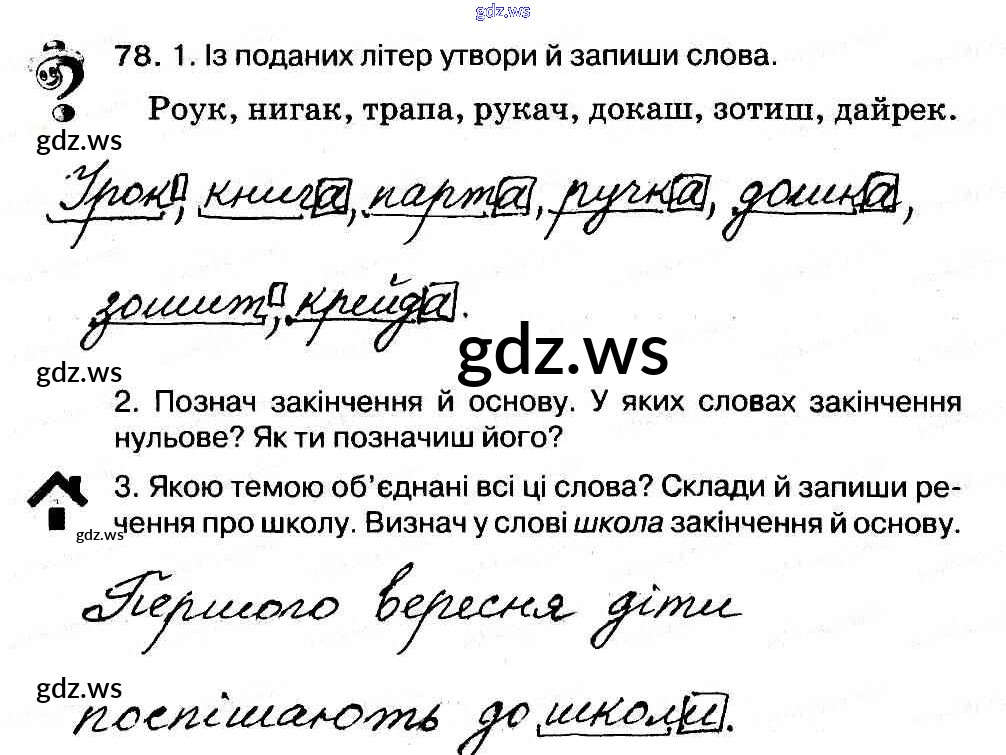 gdz.ws
78. 1. Із поданих літер утвори й запиши слова.
Роук, нигак, трапа, рукач, докаш, зотиш, дайрек.
gdz.ws
Урок, книга, парта, ручка, дошка,
зошит, крейда.
gdz.ws
gdz.ws
2. Познач закінчення й основу. У яких словах закінчення
нульове? Як ти позначиш його?
3. Якою темою об’єднані всі ці слова? Склади й запиши ре-
чення про школу. Визнач у слові школа закінчення й основу.
gdz.ws
Першого вересня діти
gdz.ws
поспішають до школи.